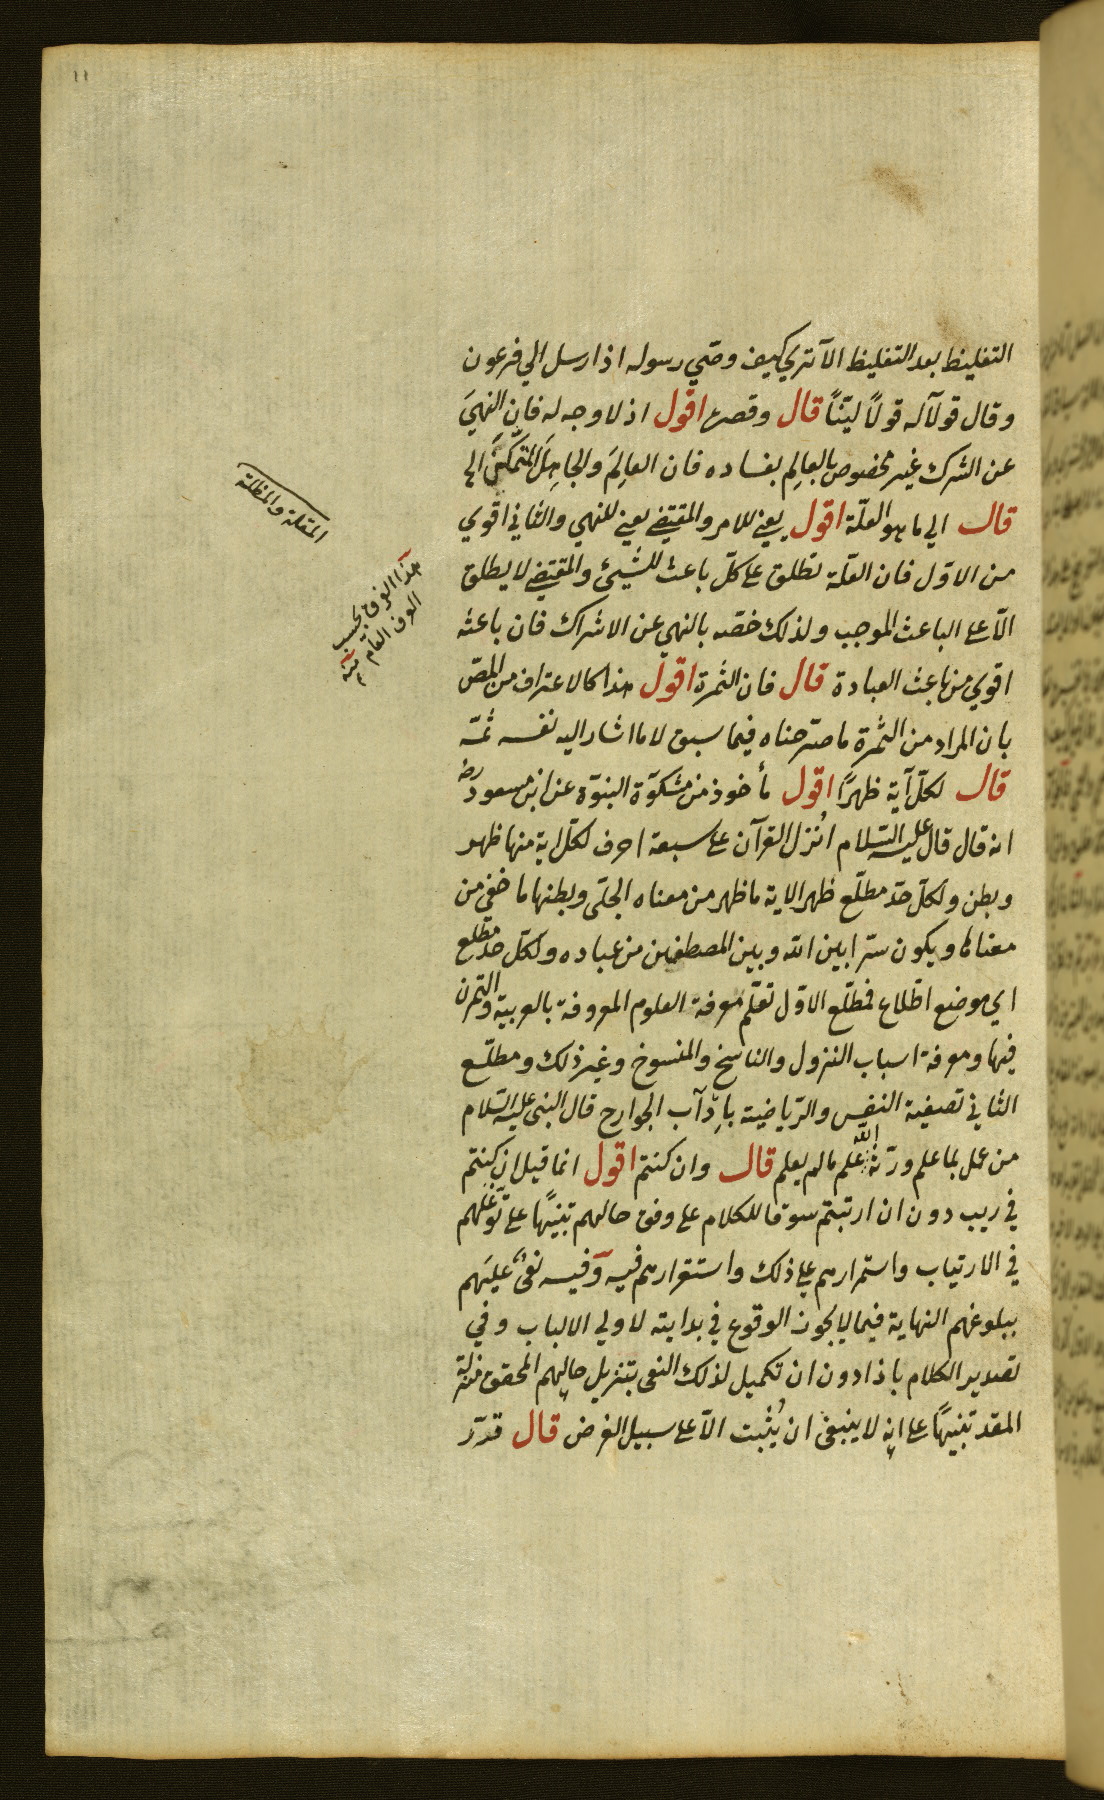 ١١
التغليظ بعد التغليظ الا ترى كيف وصّي رسوله اذا رسل الي فرعون
وقال قولا له قولاً ليّناً قال وقصره اقول اذ لا وجه له فان النهيَ
عن الشرك غير مخصوص بالعالِم بفساده فان العالِمَ والجاهلَ المتمكّنَ الي
قال الي ما هو العلّة اقول يعني للامر والمقتضي يعني للنهي والثاني اقوي
من الاوّل فان العلّة تطلق على كلّ باعث للشيئ والمقتضي لا يطلق
الّا على الباعث الموجب ولذلك خصّه بالنهي عن الاشراك فان باعثه
اقوي من باعث العبادة قال فان الثمرة اقول هذا كالاعتراف من المصّ
بان المراد من الثمرة ما صرّحناه فيما سبق لا ما اشار اليه نفسه ثمّه
قال لكلّ آية ظهرًا اقول مأخوذ من مشكوة النبوّة عن ابن مسعود رض
انه قال قال عليه السّلام اُنزل القرآن على سبعة احرف لكلّ اية منها ظهر
وبطن ولكلّ حدّ مطلّع ظهر الاية ما ظهر من معناه الجلّى وبطنها ما خفي من
معناها ويكون سرّا بين الله وبين المصطفين من عباده ولكلّ حدّ مطّلع
اي موضع اطّلاع فمطّلع الاوّل تعلّم معرفة العلوم المعروفة بالعربية والتمرن
فيها ومعرفة اسباب النزول والناسخ والمنسوخ وغير ذلك ومطلّع
الثاني تصفية النفس والرّياضية بادٓآب الجوارح قال النبي عليه السّلام
من عمل بما علم ورّثه الله علم ما لم يعلم قال وان كنتم اقول انما قيل ان كنتم
في ريب دون ان ارتبتم سوقا للكلام على وفق حالهم تنبيهًا على توغّلهم
في الارتياب واستمرارهم على ذلك واستقرارهم فيه وفيه نعىٌ عليهم
ببلوغهم النهاية فيما لا يجوز الوقوع في بدايته لاولي الالباب وفي
تصدير الكلام باذا دون ان تكميل لذلك النعى بتنزيل حالهم المحقق منزلة
المقدر تنبيهًا على انه لا ينبغي ان يُثبت الّا على سبيل الفرض قال قدّر
المقلة والمظلة
هذا الفرق بحسب
العرف العام منه